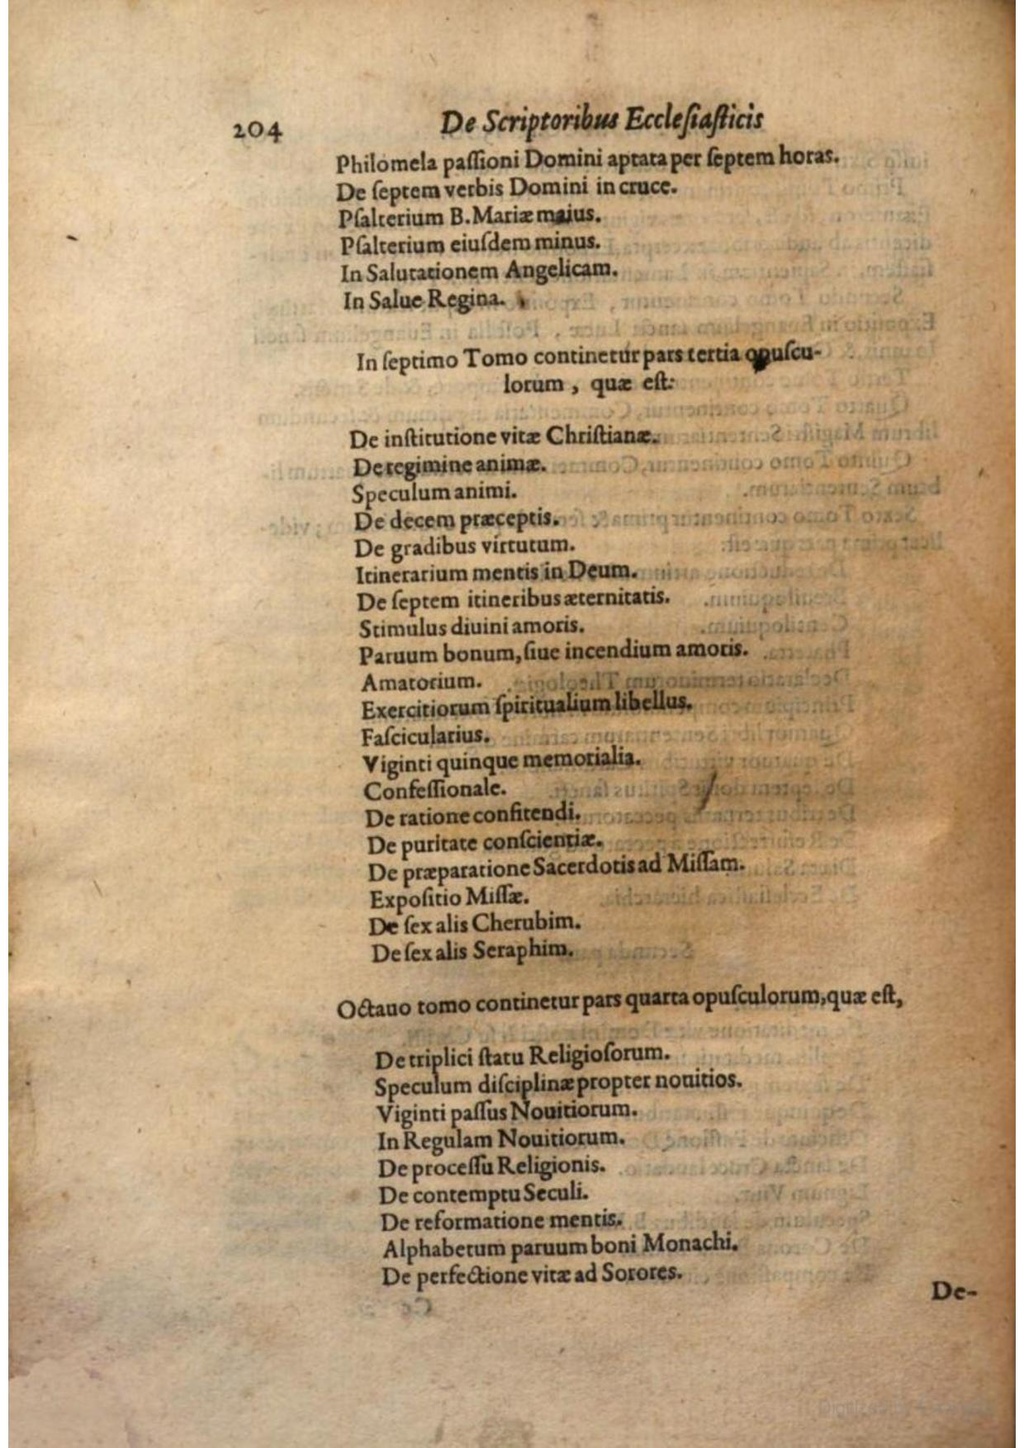 204 De Scriptoribus Ecclesiasticis
Philomela paſſioni Domini aptata per ſeptem horas.
De ſeptem verbis Domini in cruce.
Pſalterium B. Mariæ maius.
Pſalterium eiuſdem minus.
In Salutationem Angelicam.
In Salue Regina.
In ſeptimo Tomo continetur pars tertia opuſcu-
lorum, quæ eſt:
De inſtitutione vitæ Chriſtianæ.
De regimine animæ.
Speculum animi.
De decem præceptis.
De gradibus virtutum.
Itinerarium mentis in Deum.
De ſeptem itineribus æternitatis.
Stimulus diuini amoris.
Paruum bonum, ſiue incendium amoris.
Amatorium.
Exercitiorum ſpiritualium libellus.
Faſcicularius.
Viginti quinque memorialia.
Confeſſionale.
De ratione confitendi.
De puritate conſcientiæ.
De præparatione Sacerdotis ad Miſſam.
Expoſitio Miſſæ.
De ſex alis Cherubim.
De ſex alis Seraphim.
Octauo tomo continetur pars quarta opuſculorum, quæ eſt,
De triplici ſtatu Religioſorum.
Speculum diſciplinæ propter nouitios.
Viginti paſſus Nouitiorum.
In Regulam Nouitiorum.
De proceſſu Religionis.
De contemptu Seculi.
De reformatione mentis.
Alphabetum paruum boni Monachi.
De perfectione vitæ ad Sorores.
De-